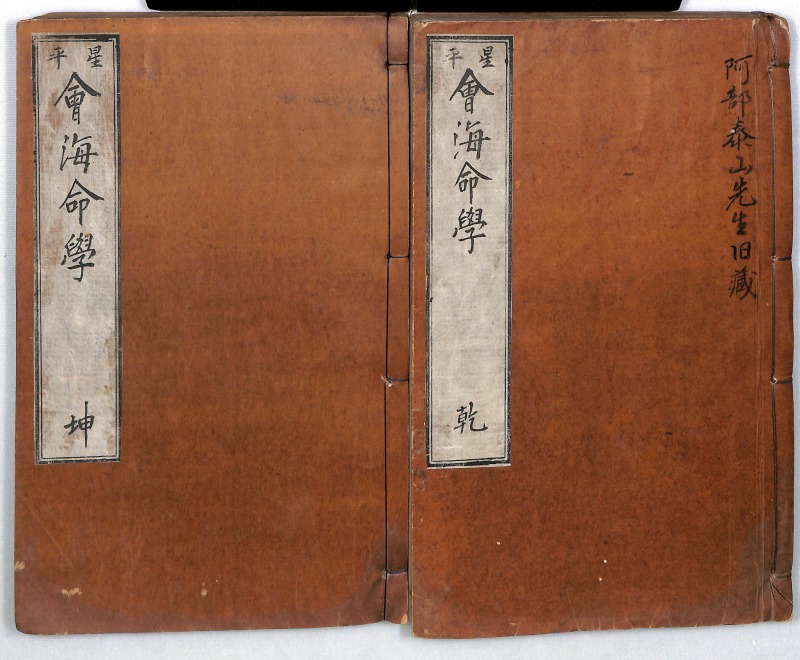 阿部泰山先生旧藏
星平
會海命學
乾
星平
會海命學
坤